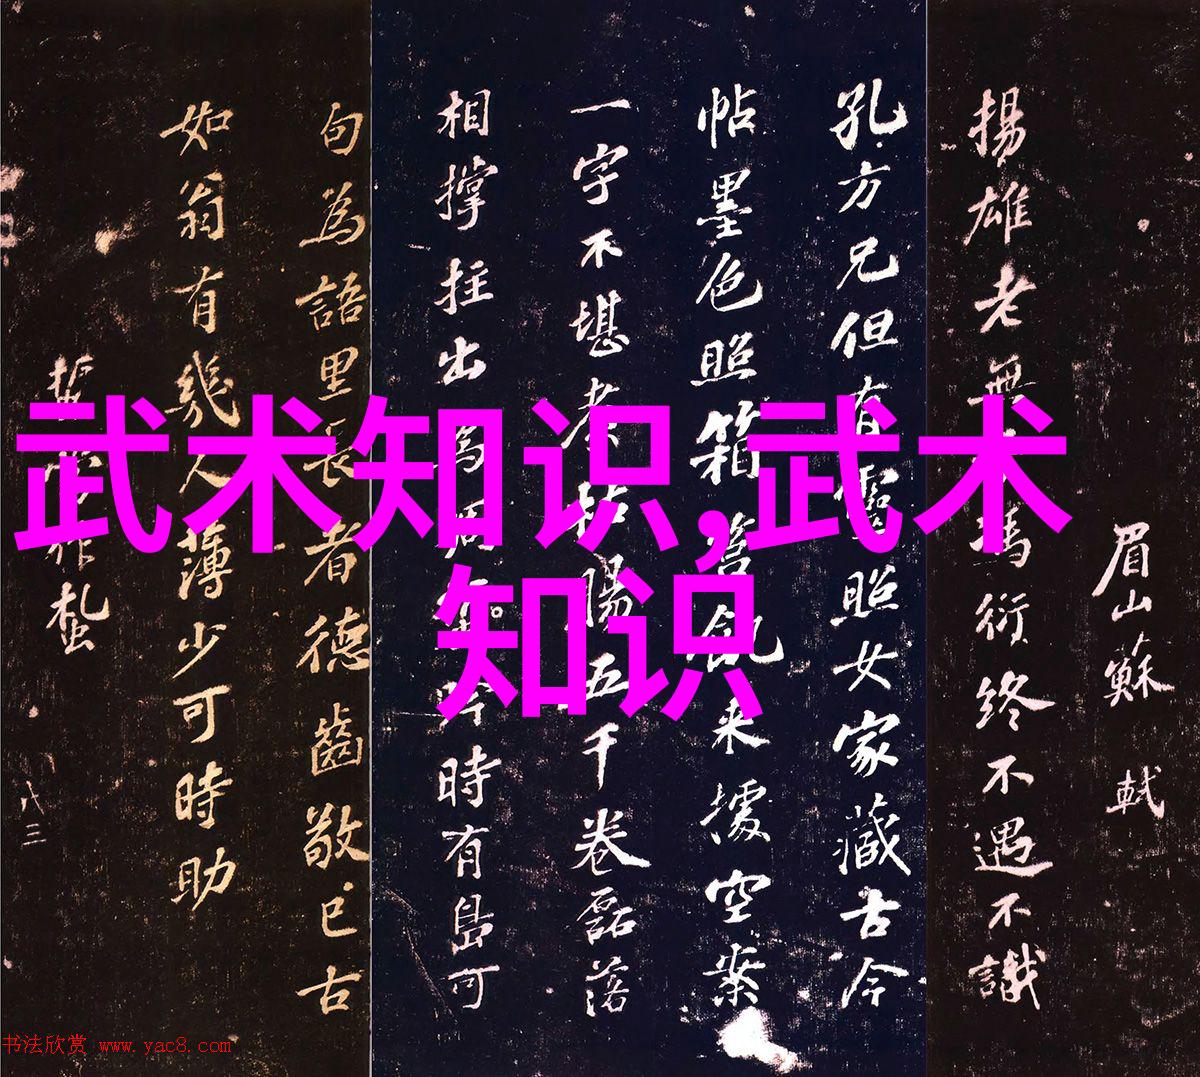 武术知识,武术
知识
眉山蘇軾
揚雄老無馮衍終不遇不識
孔方兄但有靈照女家藏古今
帖墨色照箱筥飢来據空案
一字不堪煮枯腸五千卷磊落
相撑拄出為吟時有島可
句為語里長者德齒敬已古
如翁有幾人薄少可時助
八三
书法欣赏 www.yac8.com